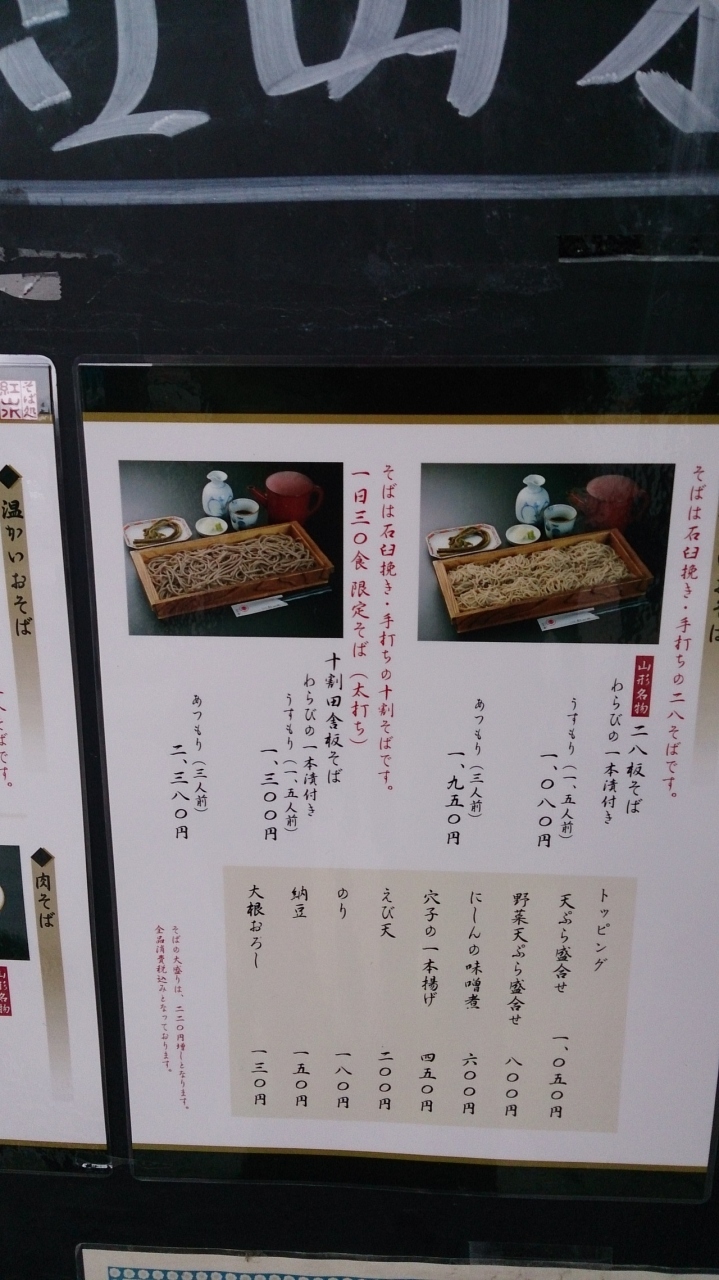 そばは石臼挽き・手打ちの二八そばです。
山形名物
二八板そば
わらびの一本漬付き
うすもり（一、五人前）
一、〇八〇円
あつもり（三人前）
一、九五〇円
そばは石臼挽き・手打ちの十割そばです。
一日三〇食 限定そば（太打ち）
十割田舎板そば
わらびの一本漬付き
うすもり（一、五人前）
一、三〇〇円
あつもり（三人前）
二、三八〇円
トッピング
天ぷら盛合せ 一、〇五〇円
野菜天ぷら盛合せ 八〇〇円
にしんの味噌煮 六〇〇円
穴子の一本揚げ 四五〇円
えび天 二〇〇円
のり 一八〇円
納豆 一五〇円
大根おろし 一三〇円
そばの大盛りは、二二〇円増しとなります。
全品消費税込みとなっております。
そば処
温かいおそば
肉そば
山形名物